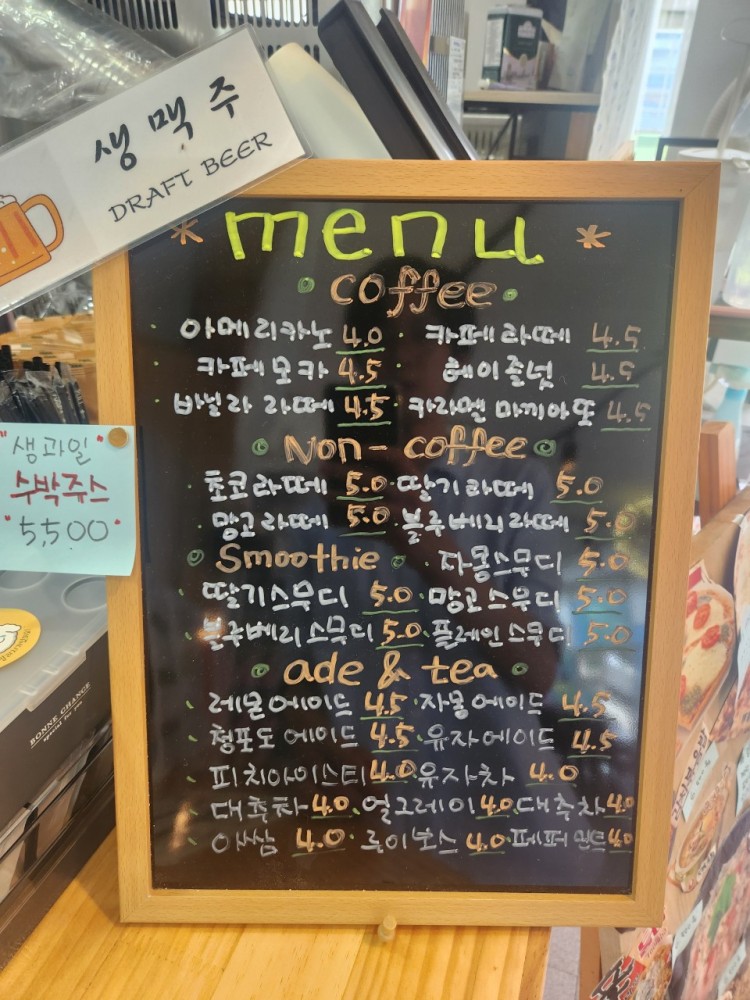 생맥주
DRAFT BEER
* menu *
coffee
아메리카노 4.0 · 카페라떼 4.5
카페모카 4.5 · 헤이즐넛 4.5
바닐라 라떼 4.5 · 카라멜 마끼아또 4.5
Non - coffee
초코라떼 5.0 · 딸기라떼 5.0
망고라떼 5.0 · 블루베리라떼 5.0
Smoothie · 자몽스무디 5.0
딸기스무디 5.0 · 망고스무디 5.0
블루베리스무디 5.0 · 플레인스무디 5.0
ade & tea
레몬에이드 4.5 · 자몽에이드 4.5
청포도에이드 4.5 · 유자에이드 4.5
피치아이스티 4.0 유자차 4.0
대추차 4.0 · 얼그레이 4.0 · 대추차 4.0
아쌈 4.0 · 루이보스 4.0 · 페퍼민트 4.0
"생과일"
수박쥬스
"5,500"
BONNE CHANCE
special for you